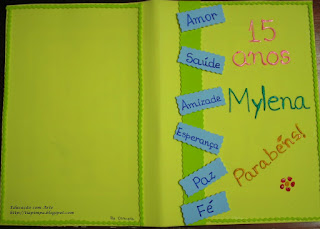 Amor
Saúde
Amizade
Esperança
Paz
Fé
15
anos
Mylena
Parabéns!
Educação com Arte